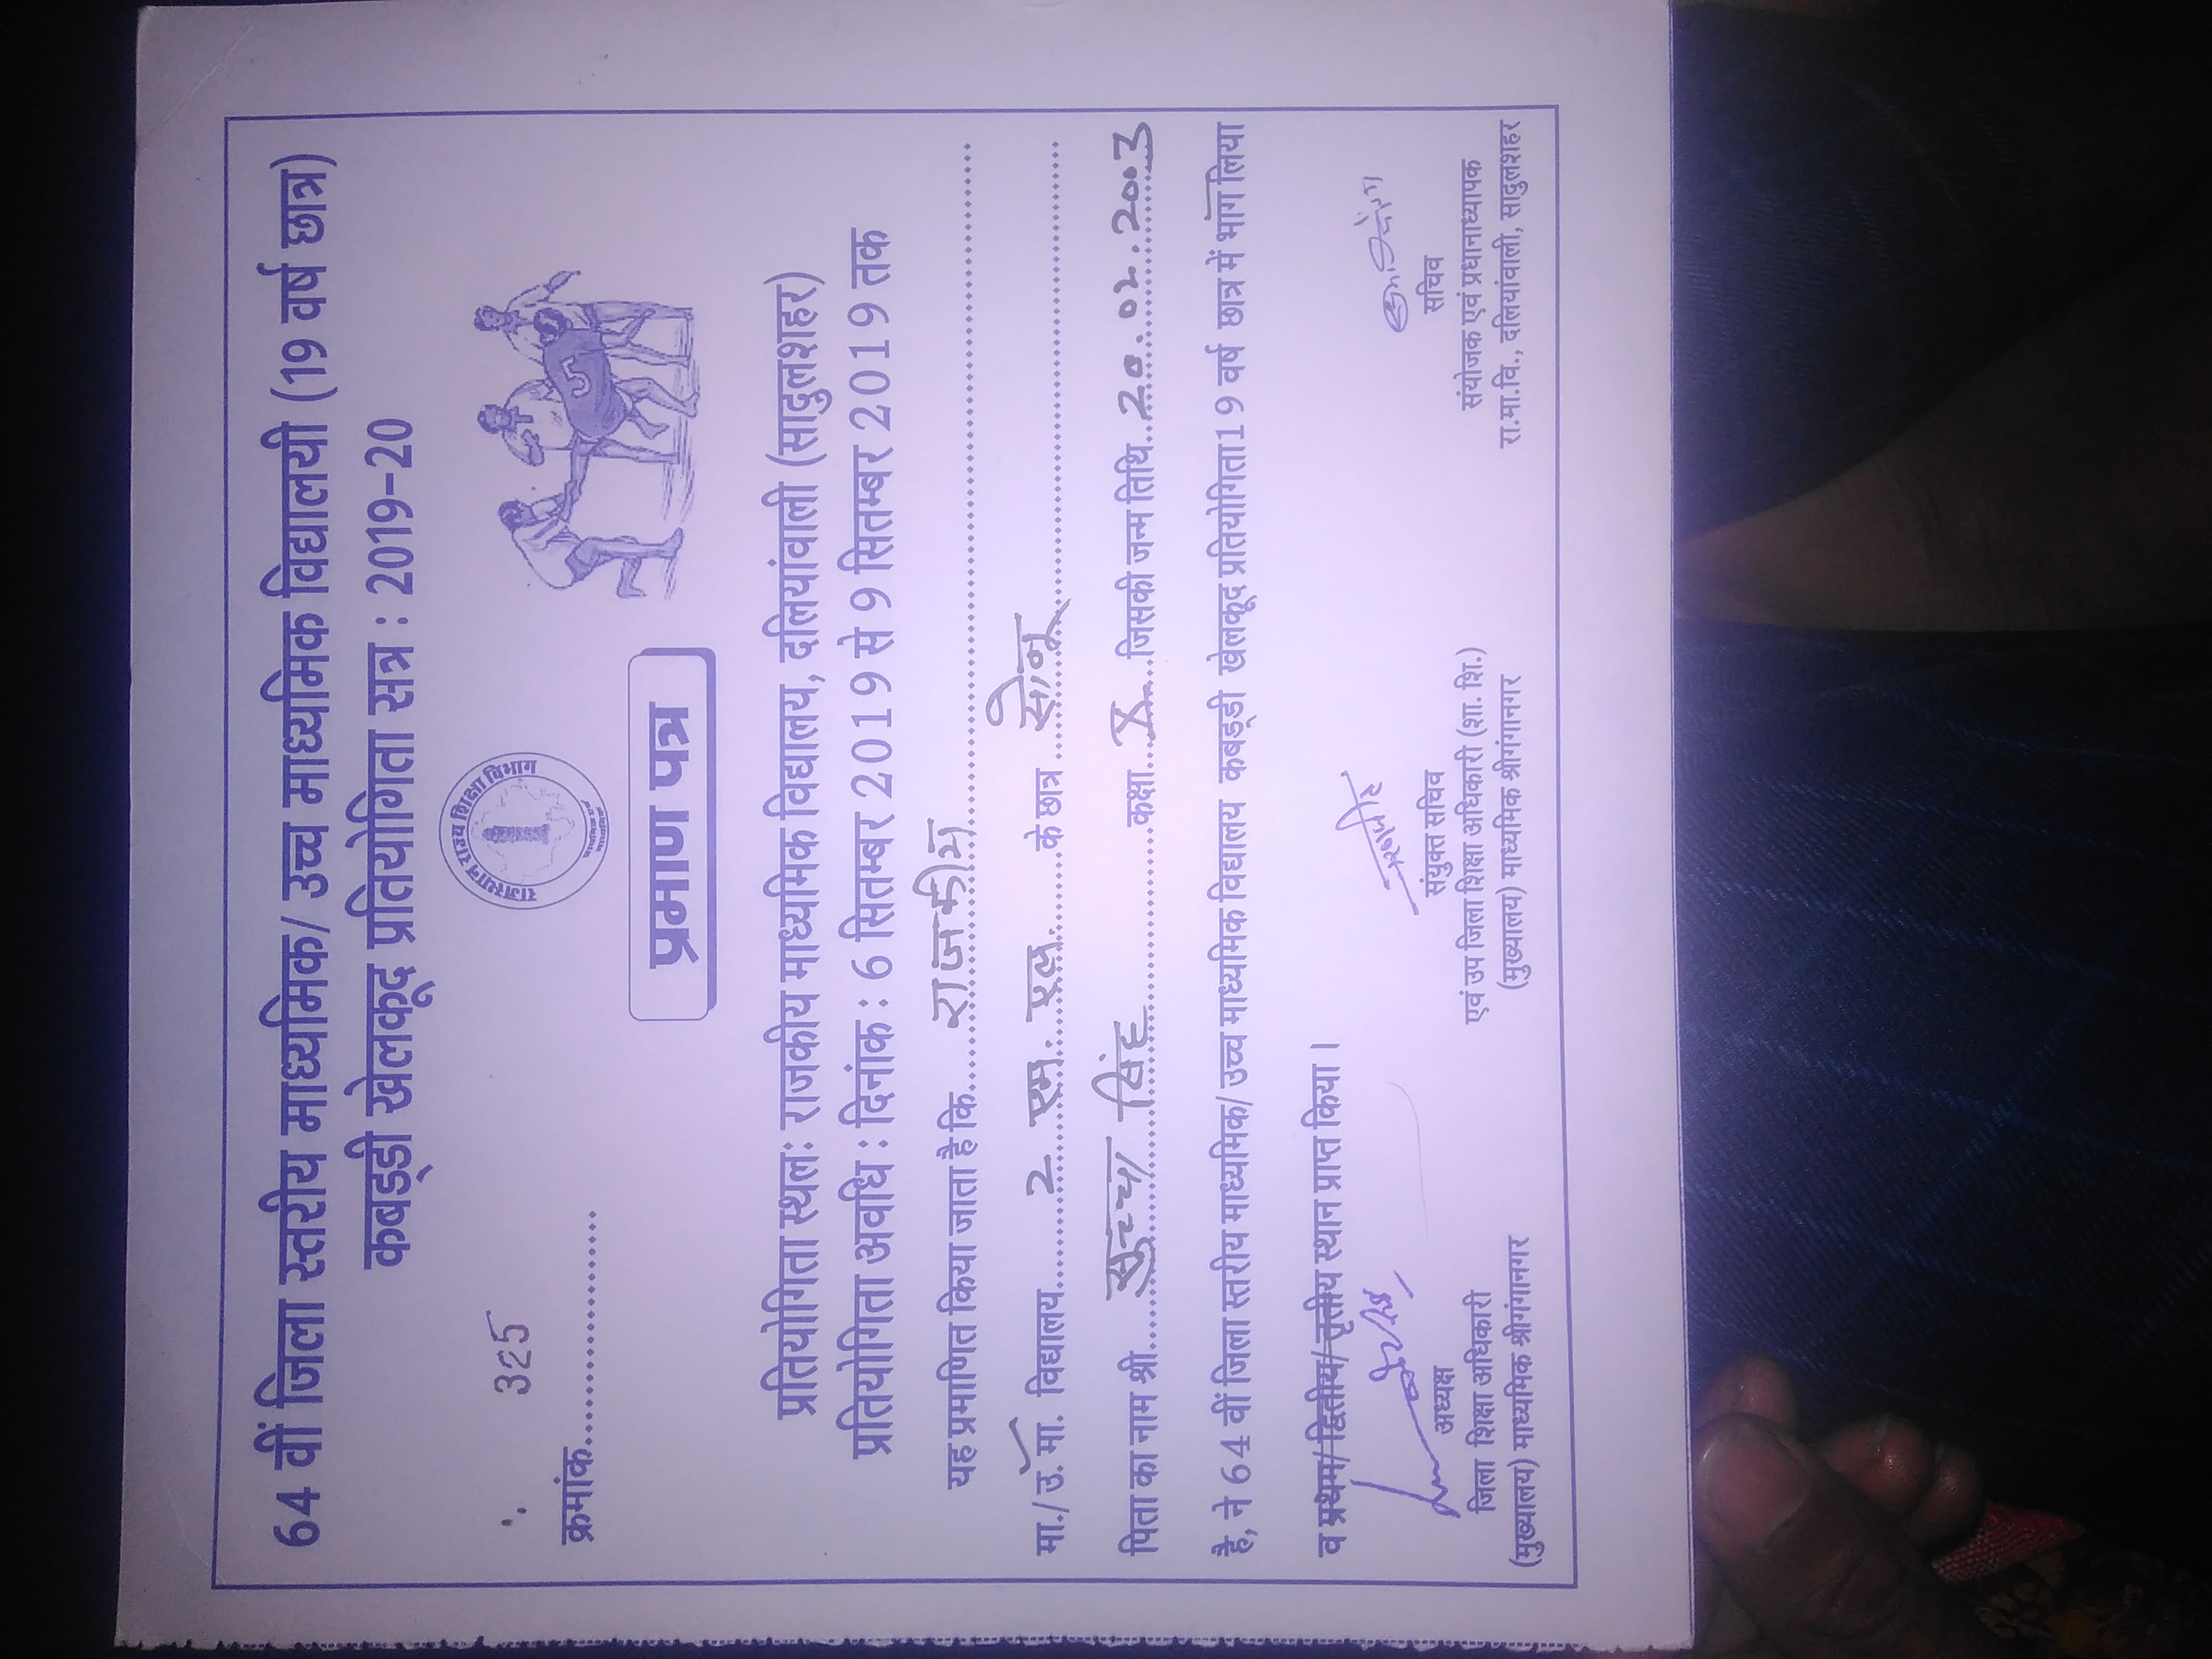 64 वीं जिला स्तरीय माध्यमिक/ उच्च माध्यमिक विद्यालयी (19 वर्ष छात्र)
कबड्डी खेलकूद प्रतियोगिता सत्र : 2019-20
राजस्थान राज्य शिक्षा विभाग
5
325
क्रमांक..............
प्रमाण पत्र
प्रतियोगिता स्थल: राजकीय माध्यमिक विद्यालय, दलियांवाली (सादुलशहर)
प्रतियोगिता अवधि : दिनांक : 6 सितम्बर 2019 से 9 सितम्बर 2019 तक
यह प्रमाणित किया जाता है कि.......राजकीय.......
मा./ उ. मा. विद्यालय.......2 एम. एल.......के छात्र.......सोनू.......
पिता का नाम श्री.......सिंह.......कक्षा...X...जिसकी जन्म तिथि..20.02.2003
है, ने 64 वीं जिला स्तरीय माध्यमिक/ उच्च माध्यमिक विद्यालय कबड्डी खेलकूद प्रतियोगिता19 वर्ष छात्र में भाग लिया
व प्रथम/ द्वितीय/ तृतीय स्थान प्राप्त किया।
अध्यक्ष
जिला शिक्षा अधिकारी
(मुख्यालय) माध्यमिक श्रीगंगानगर
संयुक्त सचिव
एवं उप जिला शिक्षा अधिकारी (शा. शि.)
(मुख्यालय) माध्यमिक श्रीगंगानगर
सचिव
संयोजक एवं प्रधानाध्यापक
रा.मा.वि., दलियांवाली, सादुलशहर